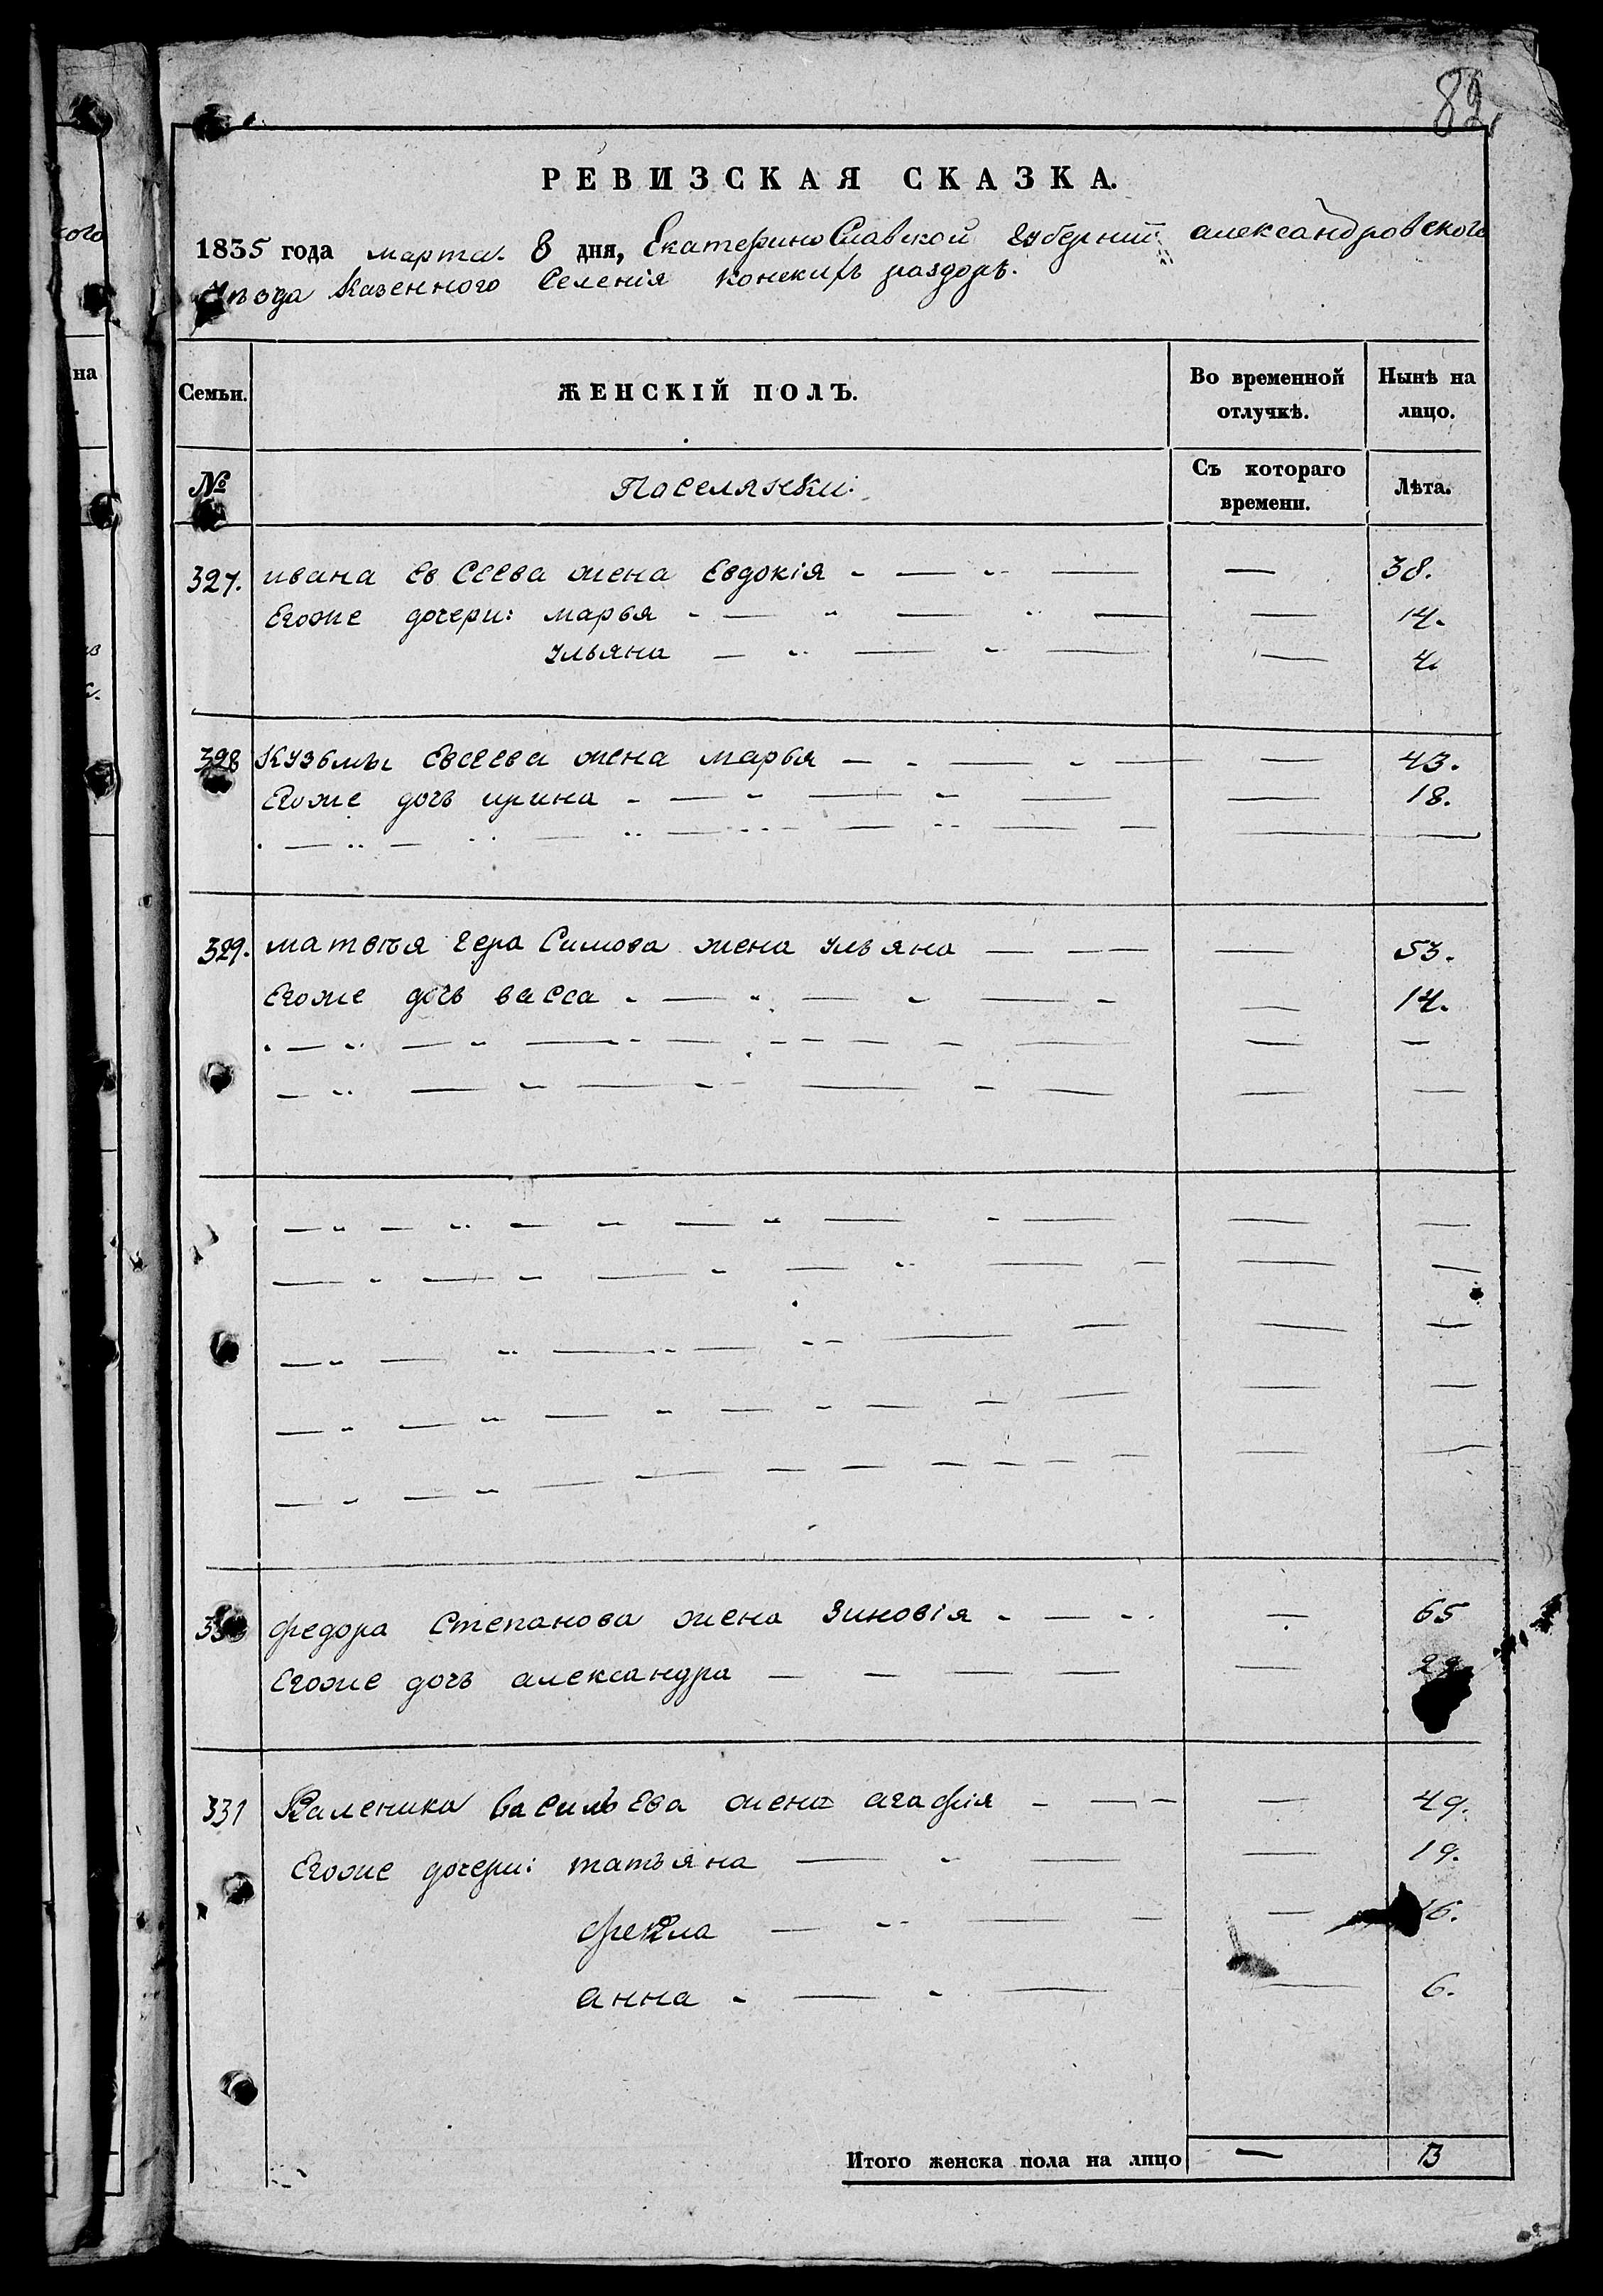 82
РЕВИЗСКАЯ СКАЗКА.
1835 года марта 8 дня, Екатерино Славской губернии александровского
Уезда Казенного Селенія конскихъ раздоръ.
Семьи. ЖЕНСКІЙ ПОЛЪ. Во временной отлучкѣ. Нынѣ на лицо.
№ Поселянки: Съ котораго времени. Лѣта.
327. ивана Ев Сеева жена Евдокія - — - — — 38.
Егоже дочери: марья - — - — - — — 14.
Ульяна — - — - — — 4.
328 Кузьмы Евсеева жена марья — - — - — — 43.
Егоже дочь ирина - — - — - — — 18.
329. матвѣя гера Симова жена Ульяна — - — — 53.
Егоже дочь васса - — - — - — - — 14.
33 федора Степанова жена Зиновія - — - - — 65
Егоже дочь александра — — — — —
331 Каленика васильева жена агафія — — - — 49.
Егоже дочери: татьяна — - — — 19.
фекла — - - — — — 16.
анна - — - — — 6.
Итого женска пола на лицо — 13
на